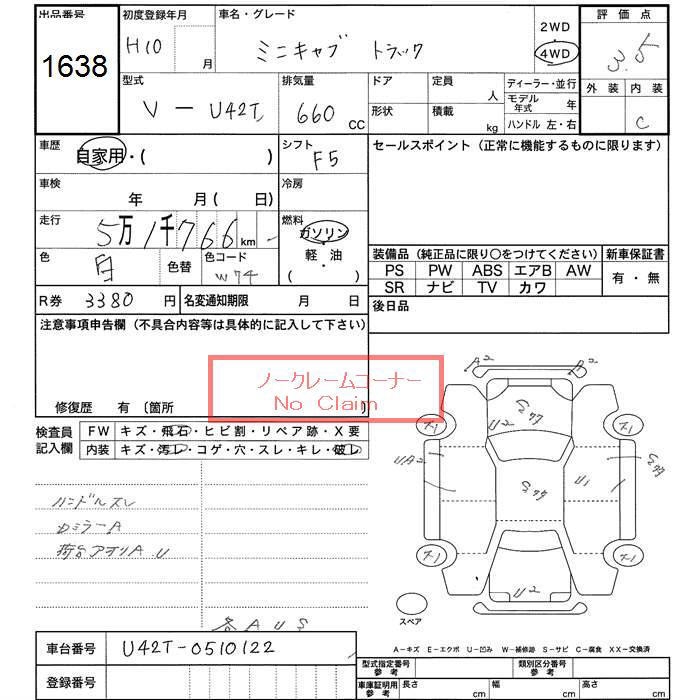 出品番号 初度登録年月 車名・グレード 2WD 評価点
1638 H10 月 ミニキャブ トラック 4WD 3.5
型式 排気量 ドア 定員 人 ディーラー・並行 外装 内装
V-U42T 660 CC 形状 積載 kg モデル年式 年 C
ハンドル 左・右
車歴 自家用・( ) シフト F5 セールスポイント (正常に機能するものに限ります)
車検 年 月( 日) 冷房
走行 5万1千766km 燃料 ガソリン
軽・油
( )
色 白 色替 色コード W74
装備品 (純正品に限り○をつけてください) 新車保証書
PS PW ABS エアB AW 有・無
SR ナビ TV カワ
R券 3380 円 名変通知期限 月 日 後日品
注意事項申告欄 (不具合内容等は具体的に記入して下さい)
ノークレームコーナー
No Claim
修復歴 有 〔箇所 〕
検査員記入欄 FW キズ・飛石・ヒビ割・リペア跡・X要
内装 キズ・汚レ・コゲ・穴・スレ・キレ・破レ
ハンドルスレ
ロミラーA
荷台アオリA U
各AUS
A2 A2
U2
UA2
U1
U2
スペア
A-キズ E-エクボ U-凹み W-補修跡 S-サビ C-腐食 XX-交換済
車台番号 U42T-0510122
登録番号
型式指定番号参考 類別区分番号参考
車庫証明用参考 長さ cm 幅 cm 高さ cm